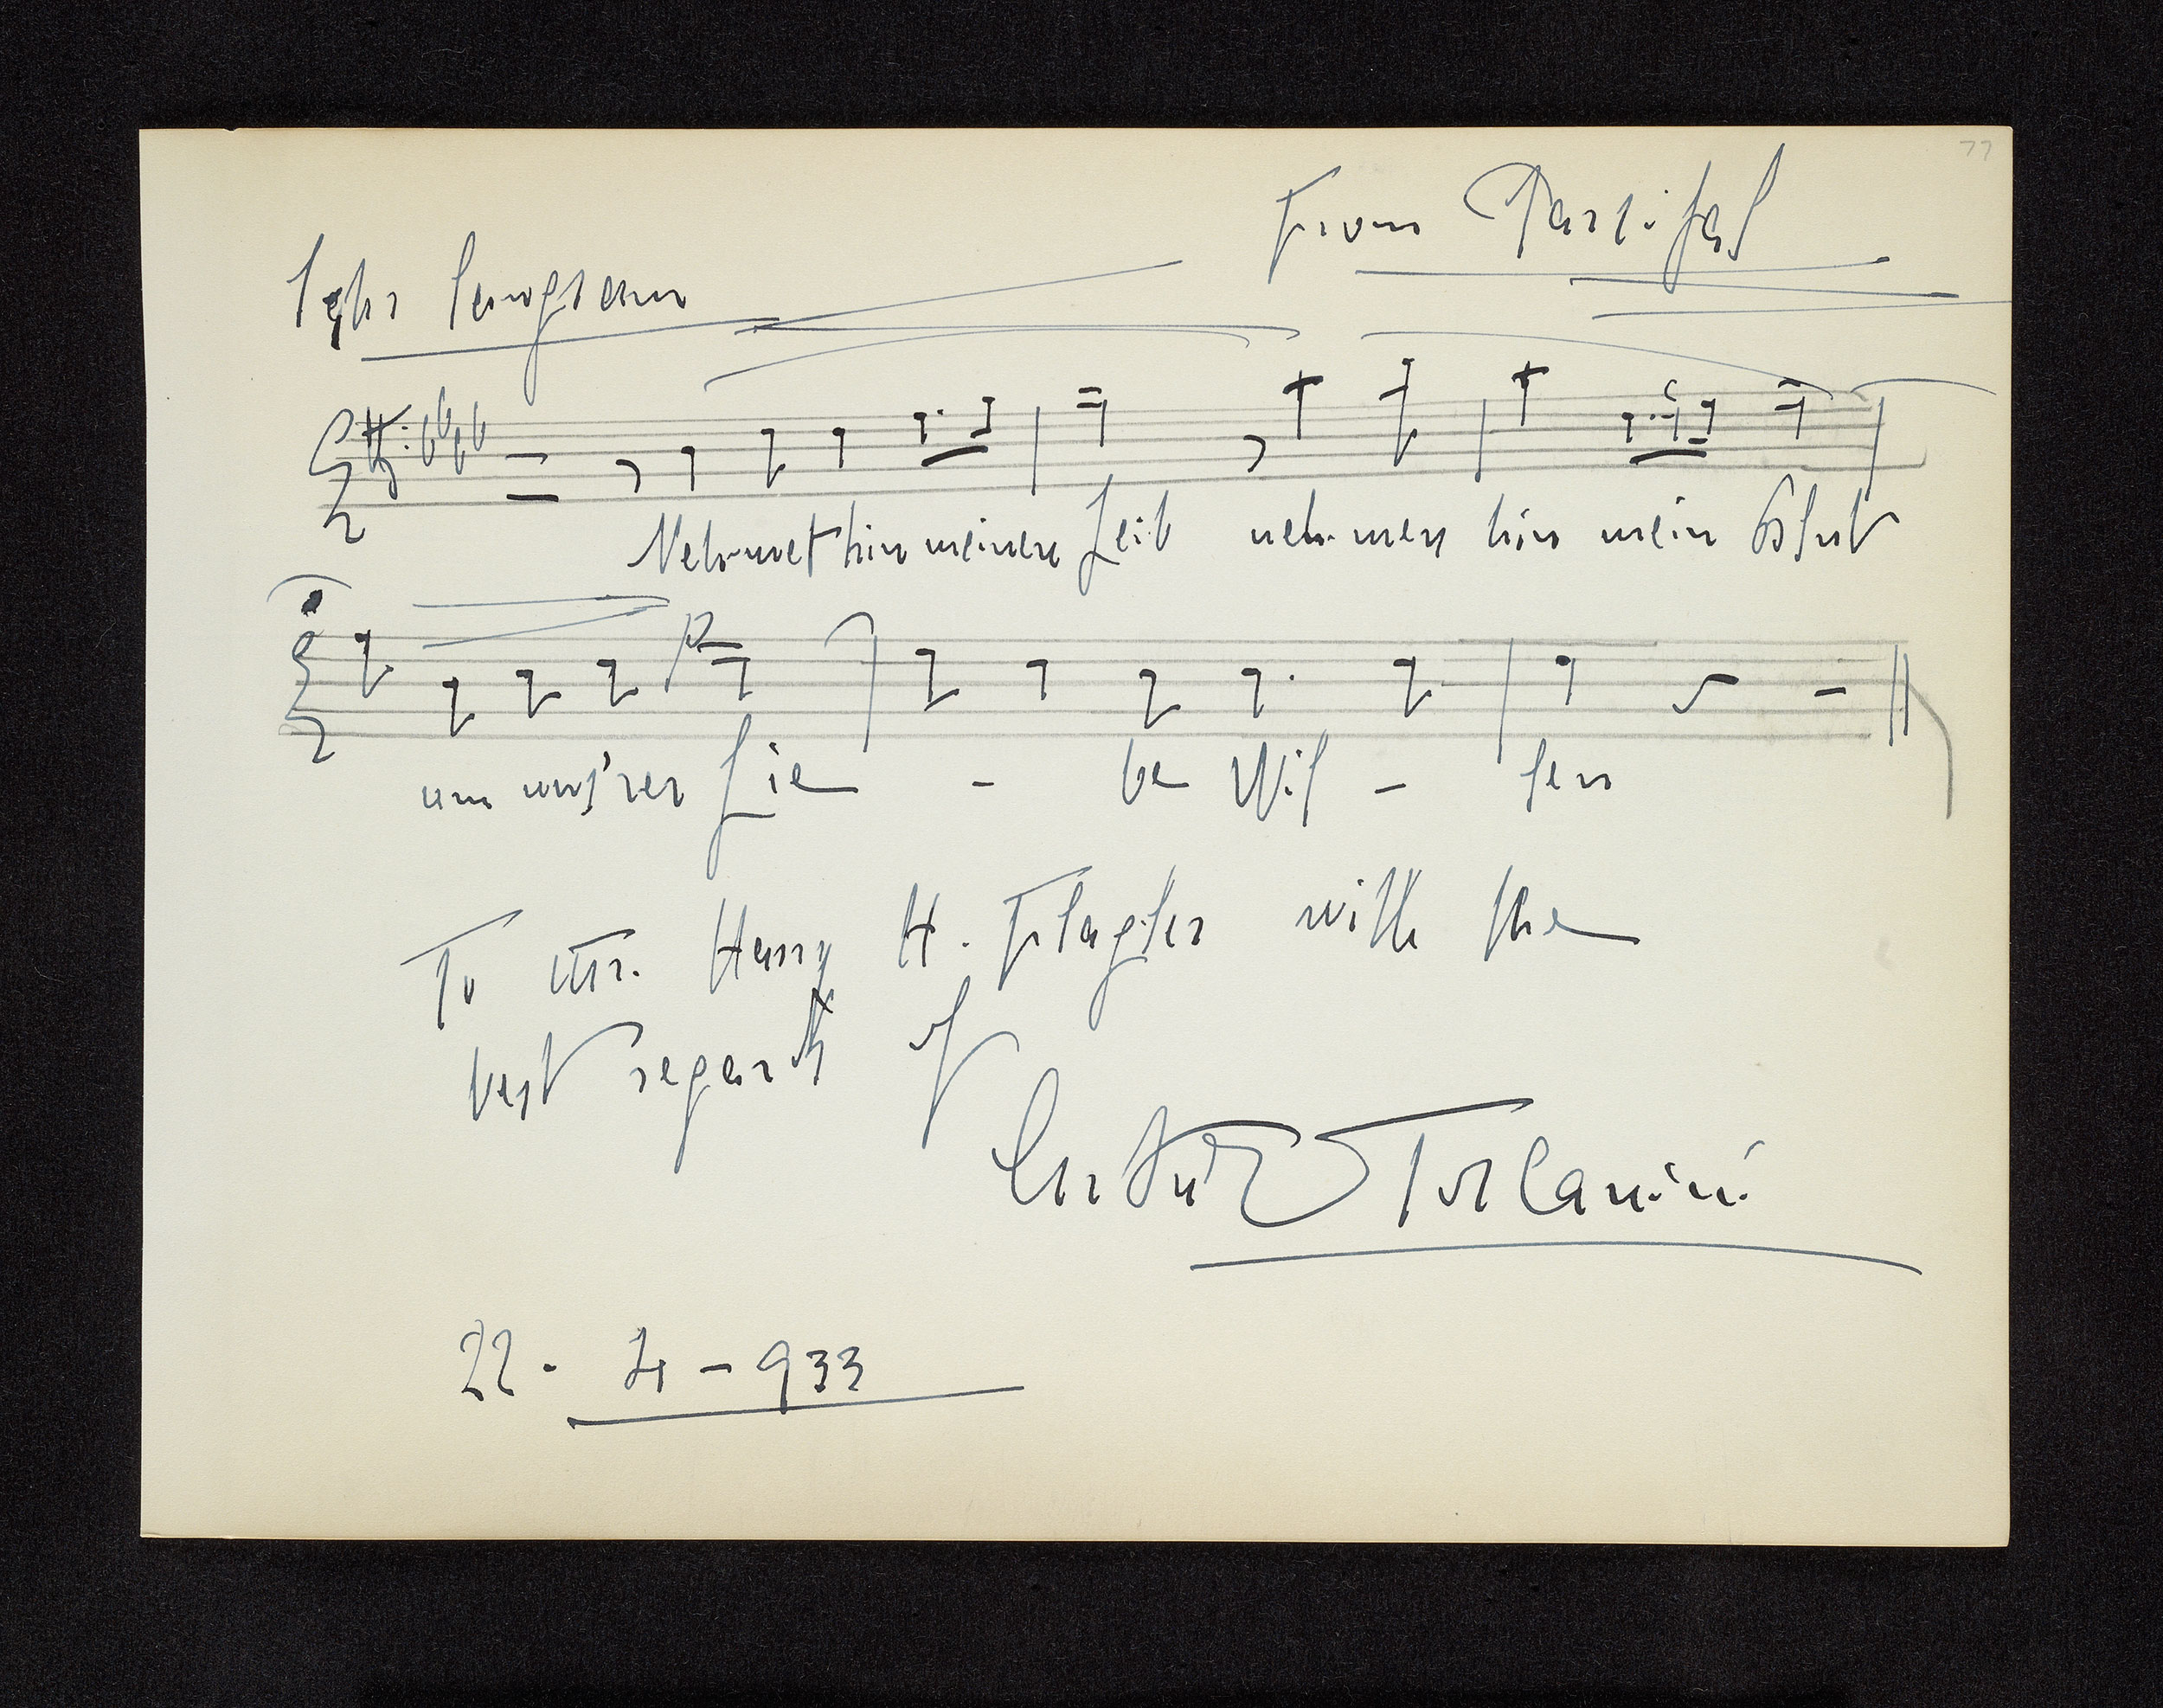 77
From Parsifal
Sehr langsam
Nehmet hin meinen Leib nehmen hin mein Blut
p
um uns'rer Lie - be Wil - len
To Mr. Harry H. Flagler with the
best regards of
Arturo Toscanini
22 - 4 - 933